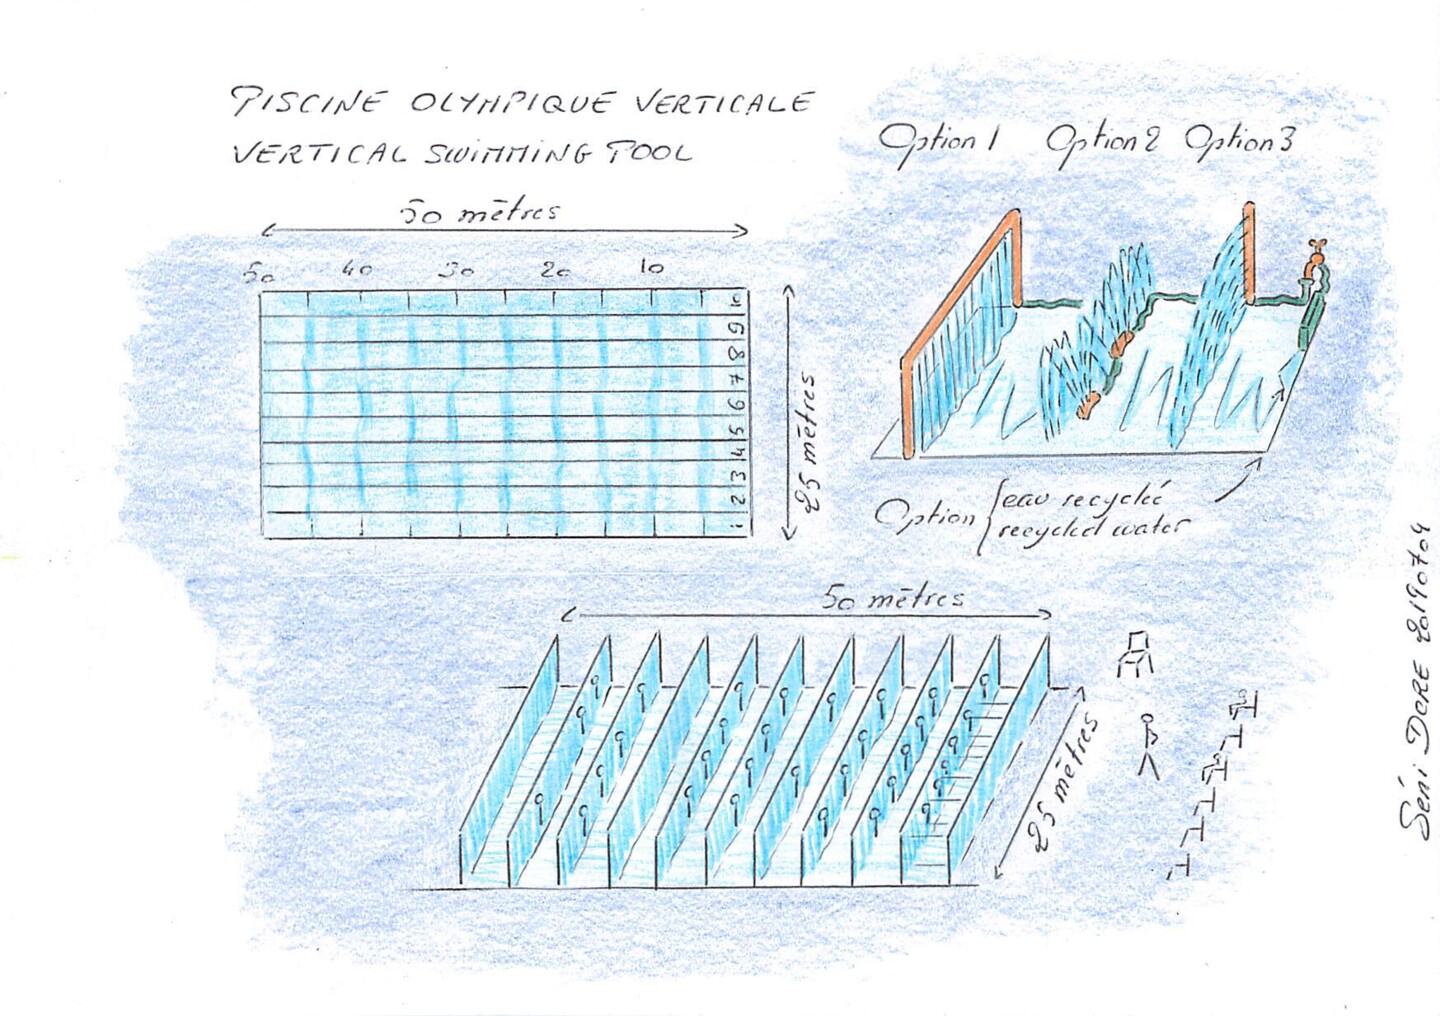 PISCINE OLYMPIQUE VERTICALE
VERTICAL SWIMMING POOL
50 mètres
50 40 30 20 10
10
9
8
7
6
5
4
3
2
1
25 mètres
Option 1 Option 2 Option 3
Option { eau recyclé
recycled water
50 mètres
25 mètres
Séni DERE 20190704